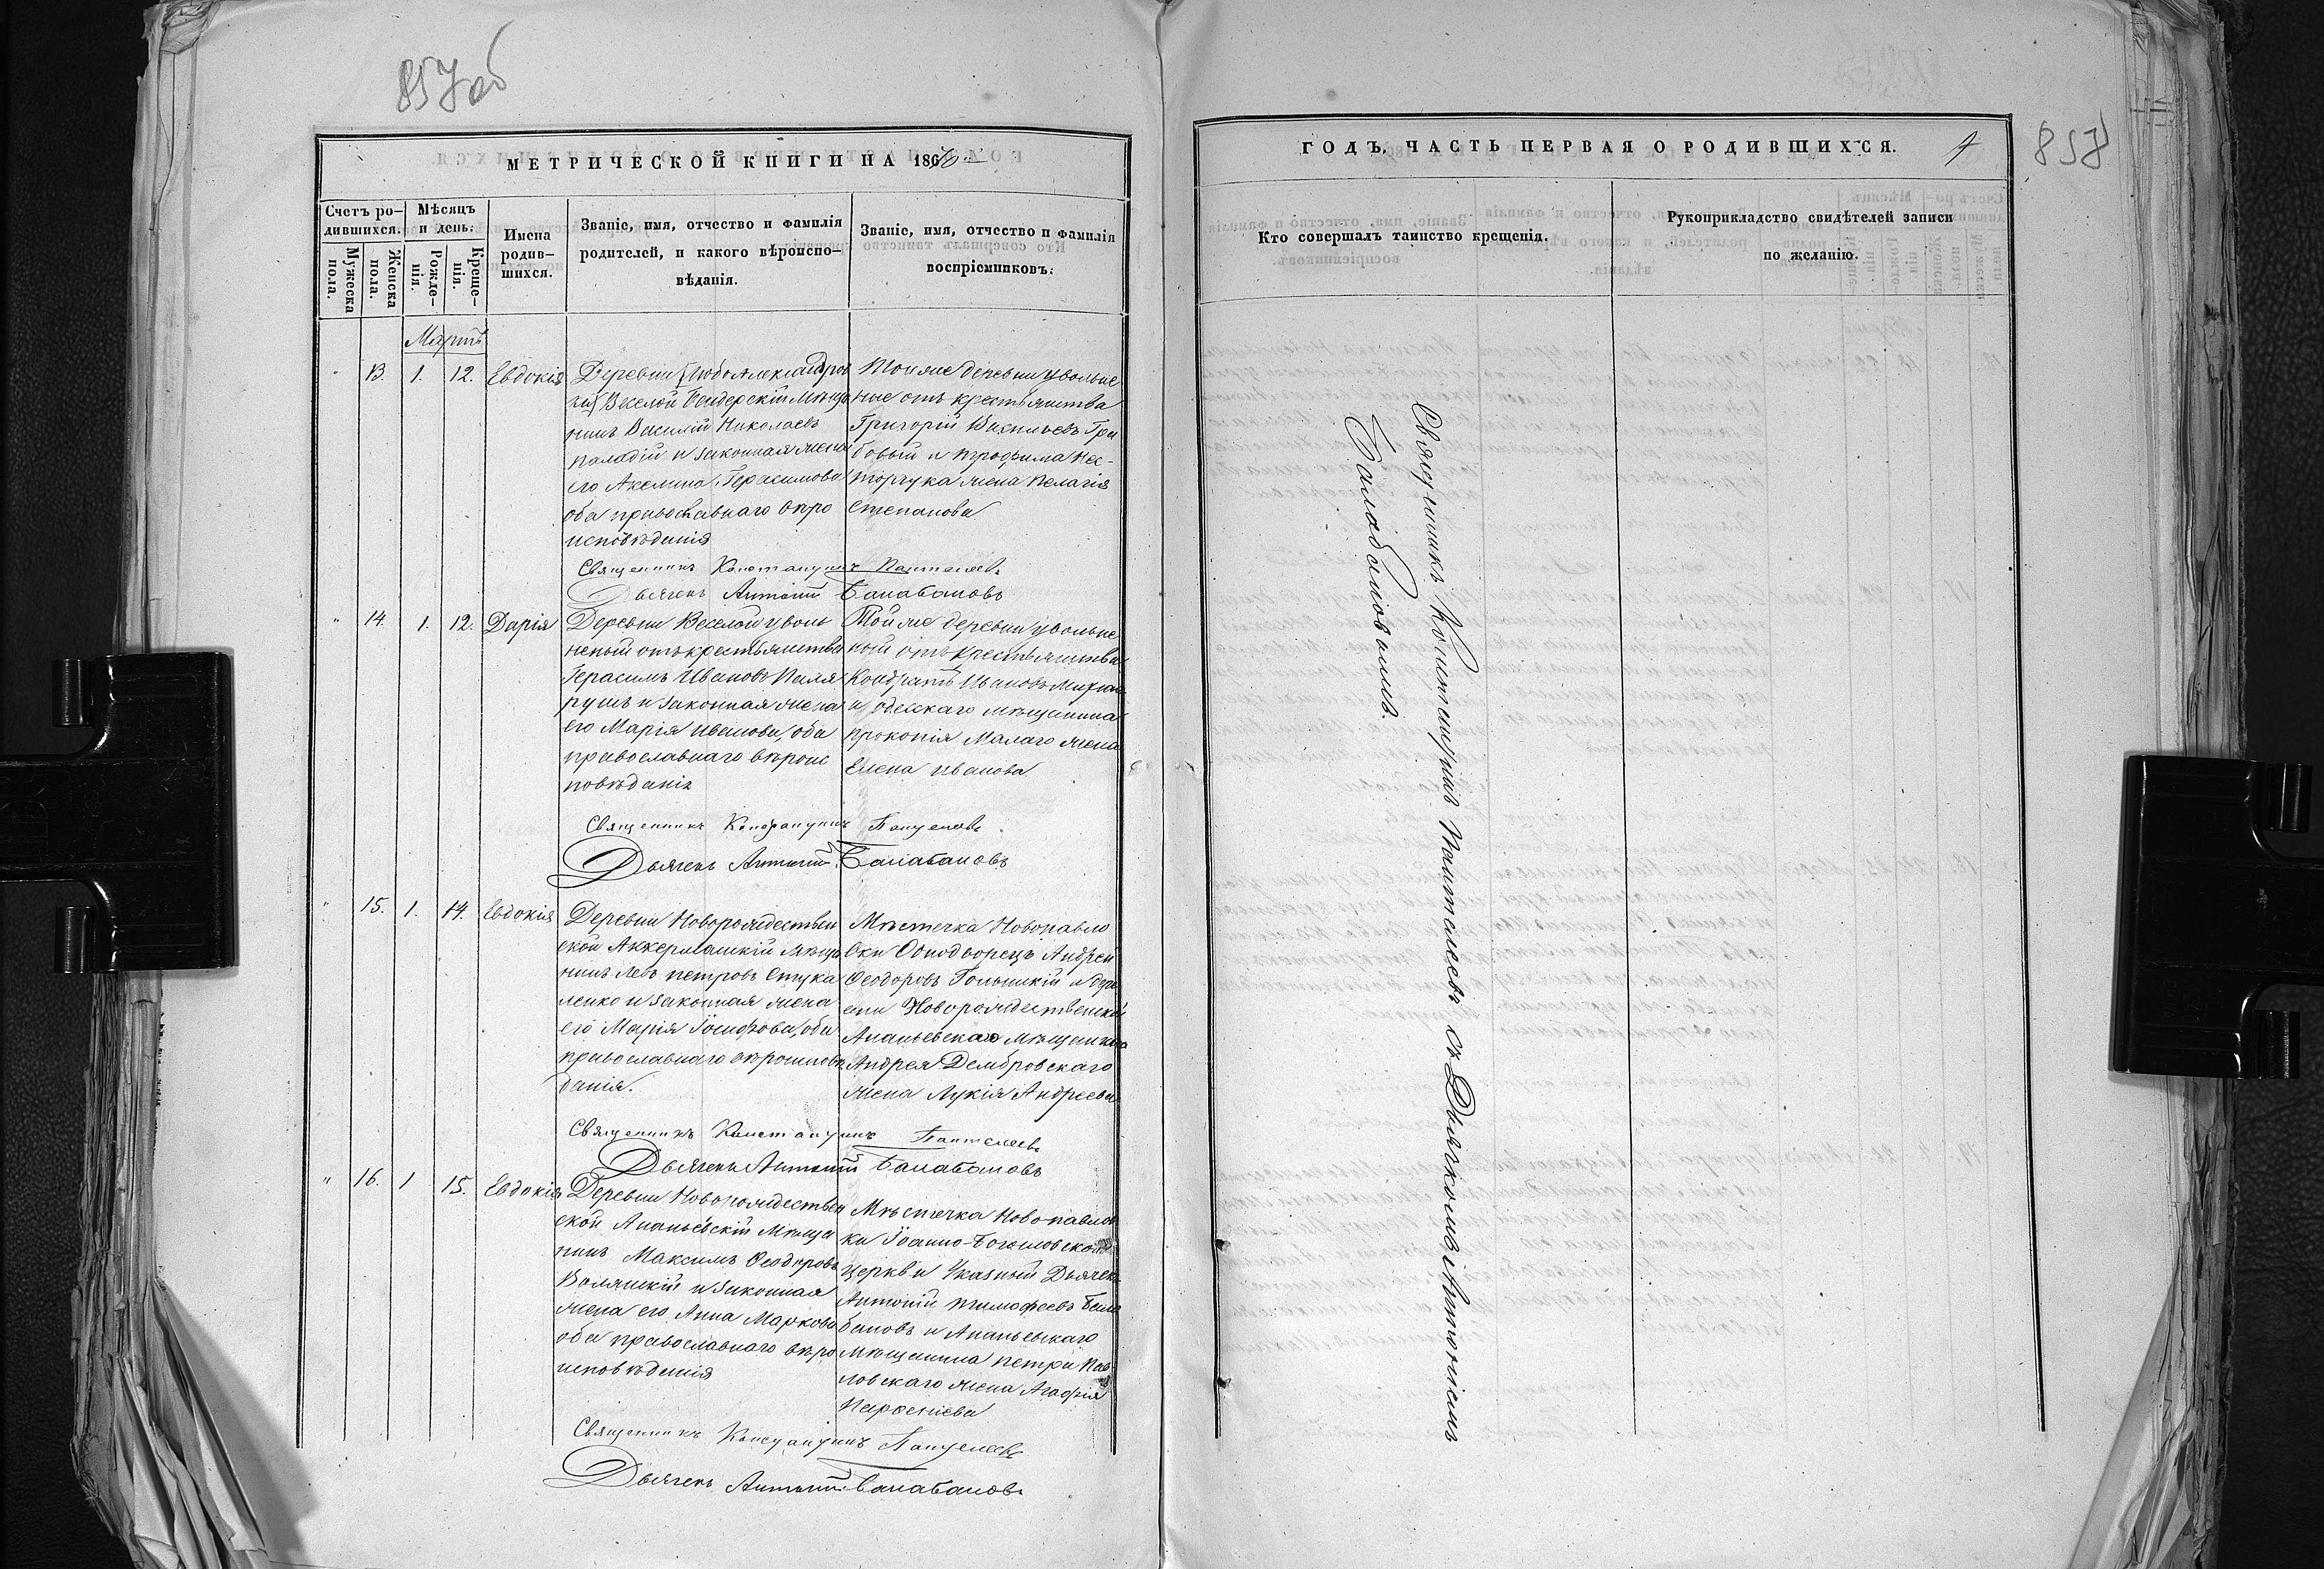 857 об
МЕТРИЧЕСКОЙ КНИГИ НА 1870
Счетъ ро-
дившихся.
Мужеска
пола.
Женска
пола.
Мѣсяцъ
и день.
Рожде-
нія.
Креще-
нія.
Имена
родив-
шихся.
Званіе, имя, отчество и фамилія
родителей, и какого вѣроиспо-
вѣданія.
Званіе, имя, отчество и фамилія
воспріемниковъ.
Мартъ
13. 1. 12. Евдокія
Деревни
Веселой Бендерскій Мѣща
нинъ Василій Николаевъ
Паладій и законная жена
его Акелина Герасимова
оба православнаго вѣро
исповѣданія
Той же деревни уволне
ные отъ крестьянства
Григорій Васильевъ Гри
бовый и Трофима Нес-
торчука жена Пелагія
Степанова
Священникъ Константинъ Пантелеевъ
Дьячекъ Антоній Балабановъ
" 14. 1. 12. Дарія
Деревни Веселой уволь
неный отъ крестьянства
Герасимъ Ивановъ
и законная жена
его Марія Иванова, оба
православнаго вѣроис
повѣданія
Той же деревни уволне
ный отъ крестьянства
Кондратъ Ивановъ
и одесскаго мѣщанина
Прокопія Малаго жена
Елена Иванова
Священникъ Константинъ Пантелеевъ
Дьячекъ Антоній Балабановъ
" 15. 1. 14. Евдокія
Деревни Новорождествен
ской Аккерманскій мѣща
нинъ Левъ Петровъ Стука
ленко и законная жена
его Марія Іосифова, оба
православнаго вѣроисповѣ
данія.
Мѣстечка Новопавло
вки Однодворецъ Андрей
Феодоровъ Гольницкій и дере
вни Новорождественской
Ананьевскаго мѣщанина
Андрея Домбровскаго
жена Лукія Андреева
Священникъ Константинъ Пантелеевъ
Дьячекъ Антоній Балабановъ
" 16. 1 15. Евдокія
Деревни Новорождествен
ской Ананьевскій Мѣща
нинъ Максимъ Феодоровъ
Волянскій и законная
жена его Анна Маркова
оба православнаго вѣро
исповѣданія
Мѣстечка Ново-павлов
ки Іоанно-Богословской
церкви Указный Дьячекъ
Антоній Тимофеевъ Бала
бановъ и Ананьевскаго
Мѣщанина Петра Пав
ловскаго жена Агафія
Парфеніева
Священникъ Константинъ Пантелеевъ
Дьячекъ Антоній Балабановъ
ГОДЪ, ЧАСТЬ ПЕРВАЯ О РОДИВШИХСЯ.
858
Кто совершалъ таинство крещенія.
Рукоприкладство свидѣтелей записи
по желанію.
Священникъ Константинъ Пантелеевъ съ Дьячкомъ Антоніемъ
Балабановымъ.